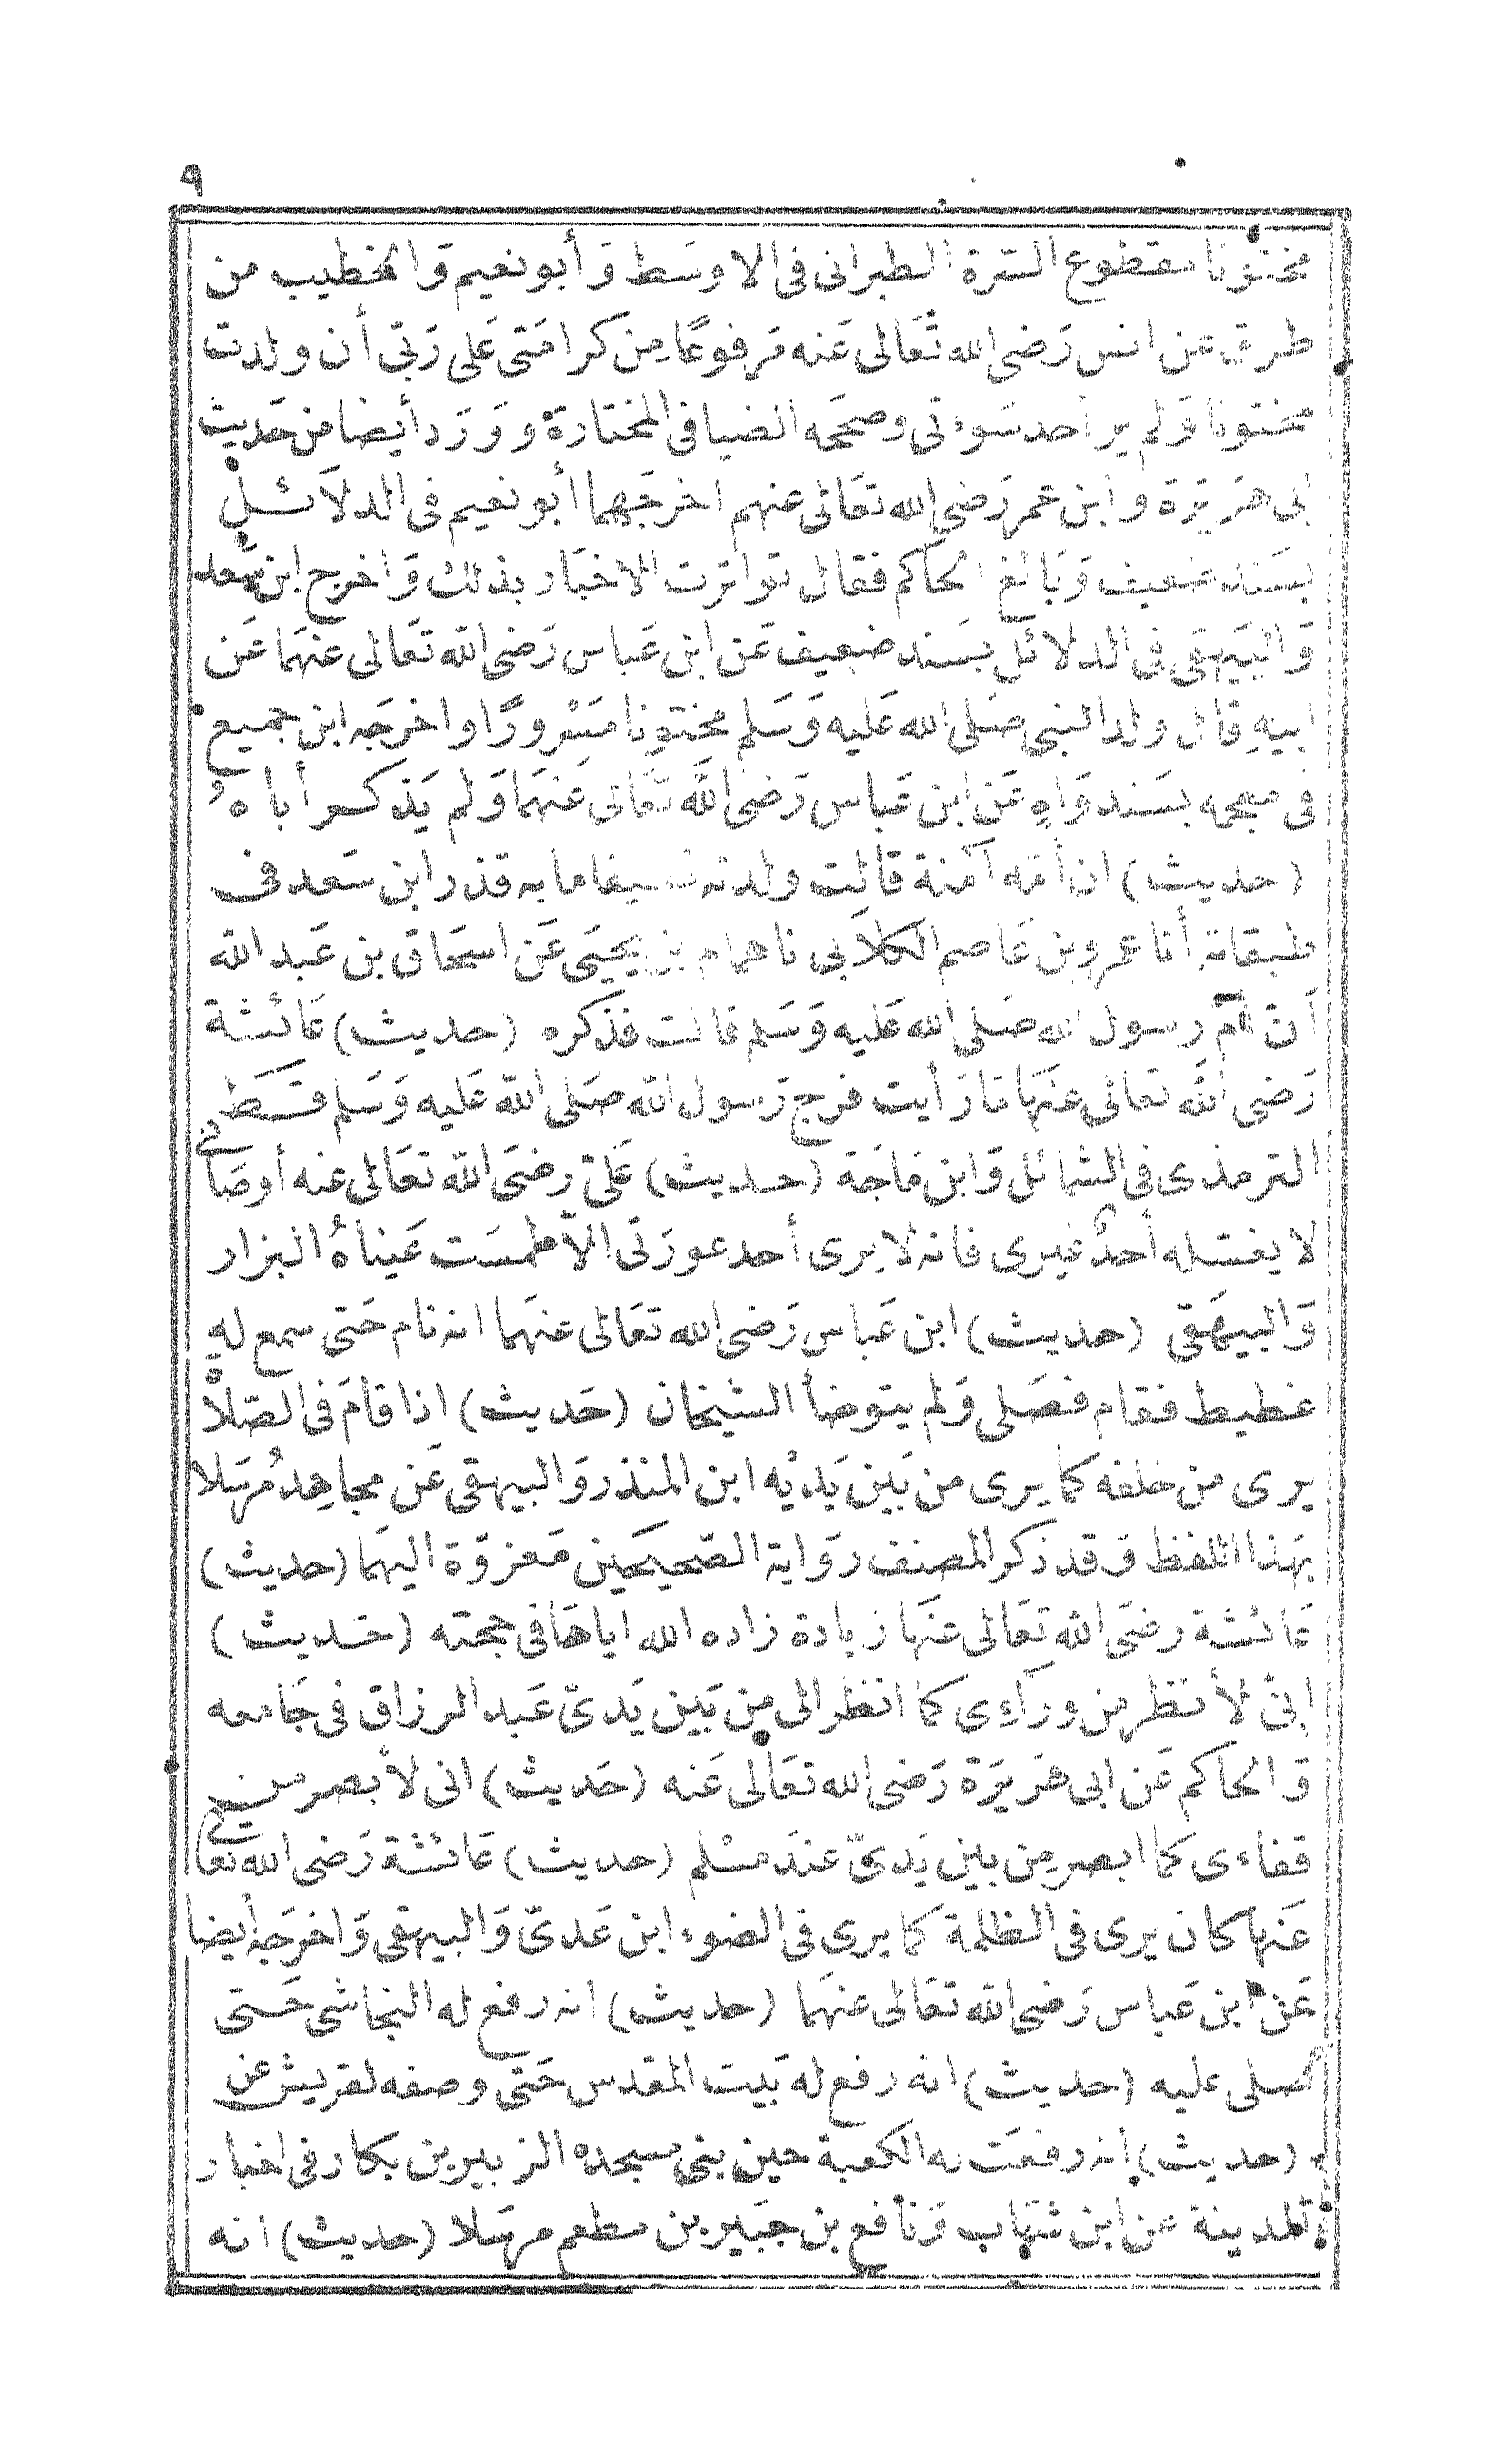 ٩
مختونا مقطوع السرة الطبرانى فى الاوسَط وَأبونعيم وَالخطيب من
طرق عن انس رَضى الله تَعَالى عَنه مَرفوعًا مِن كرامَتى عَلى رَبّى أن ولدت
مختونا وَلم ير أحد سَوءتى وصححه الضيا فى المختارة و وَرَد أيضا من حَديث
ابى هرَيرَة وابن عمر رَضى الله تعَالى عنهم اخرجَهما أبو نعيم فى الدلاَئل
بسَند ضعيف وَبَالغ الحَاكم فقال تواترت الاخبَار بذلك وَأخرج ابن سعد
وَالبَيهقى فى الدلائل بسَند ضعيف عَن ابن عَباس رَضى الله تعَالى عنهمَا عَن
ابيهِ قال ولد النبى صَلى الله عَليه وَسَلم مختونا مَسْرورًا واخرجَه ابن جميع
فى معجمه بسَند وَاهٍ عَن ابن عَباس رَضى اللَّه تعَالى عَنهمَا وَلم يَذكر أباهُ
(حديث) ان أمّه آمنة قالت ولدته نظيفا ما به قذر ابن سَعد فى
طبقاته أنا عمرو بن عَاصم الكلاَبى نا همام بن يحيَى عَن اسحَاق بن عَبد الله
أن أم رسول الله صَلى الله عَليه وَسَلم قالت فذكره (حديث) عَائشة
رَضى الله تعَالى عنهَا مَا رَأيت فرج رَسول الله صَلى الله عَليه وَسَلم قَط
الترمذى فى الشمائل وَابن مَاجَة (حديث) عَلىّ رضىَ الله تعَالى عنه أوصَانى
لا يغسله أحدٌ غيرى فانه لا يرى أحد عورَتى الاّ طمسَت عَيناهُ البزار
وَالبيهَقى (حديث) ابن عَباس رَضى الله تعَالى عنهَما انه نام حَتى سمع لهِ
غطيط فقام فصَلى وَلم يتوضأ الشيخان (حَديث) اذا قامَ فى الصّلاة
يرى من خلفه كما يرى من بَين يَديْه ابن المنذر وَالبيهقى عَن مجاهِد مُرسَلا
بهَذا اللفظ وَقد ذكر المصنف روَاية الصّحيحَين مَعزوّة اليهمَا (حديث)
عَائشة رضىَ الله تعَالى عنهَا زيادة زاده الله اياهَا فى حجته (حَديث)
انّى لأنظر من ورَاءى كما انظر الى من بَين يَدىّ عَبد الرزاق فى جَامعه
وَالحاكم عَن ابى هرَيرَة رَضى الله تعَالى عَنه (حَديث) انى لأبصر من
قفاءى كما ابصر مِن بين يَدىّ عندَ مسْلم (حديث) عَائشة رَضى الله تعَالى
عَنها كان يرى فى الظلمة كما يرى فى الضوء ابن عَدىّ وَالبيهقى وَاخرجَه أيضا
عَن ابن عَباس رَضى الله تعَالى عنهمَا (حديث) انه رفع له النجاشى حَتى
صلى عليه (حديث) انه رفع له بَيت المقدس حَتى وصفه لقريش عن
(حديث) انه رفعَت له الكعبة حين بنى مسجده الزبير بن بكار فى اخبار
المدينة عن ابن شهَاب وَنافع بن جبَير بن مطعم مرسَلا (حديث) انه